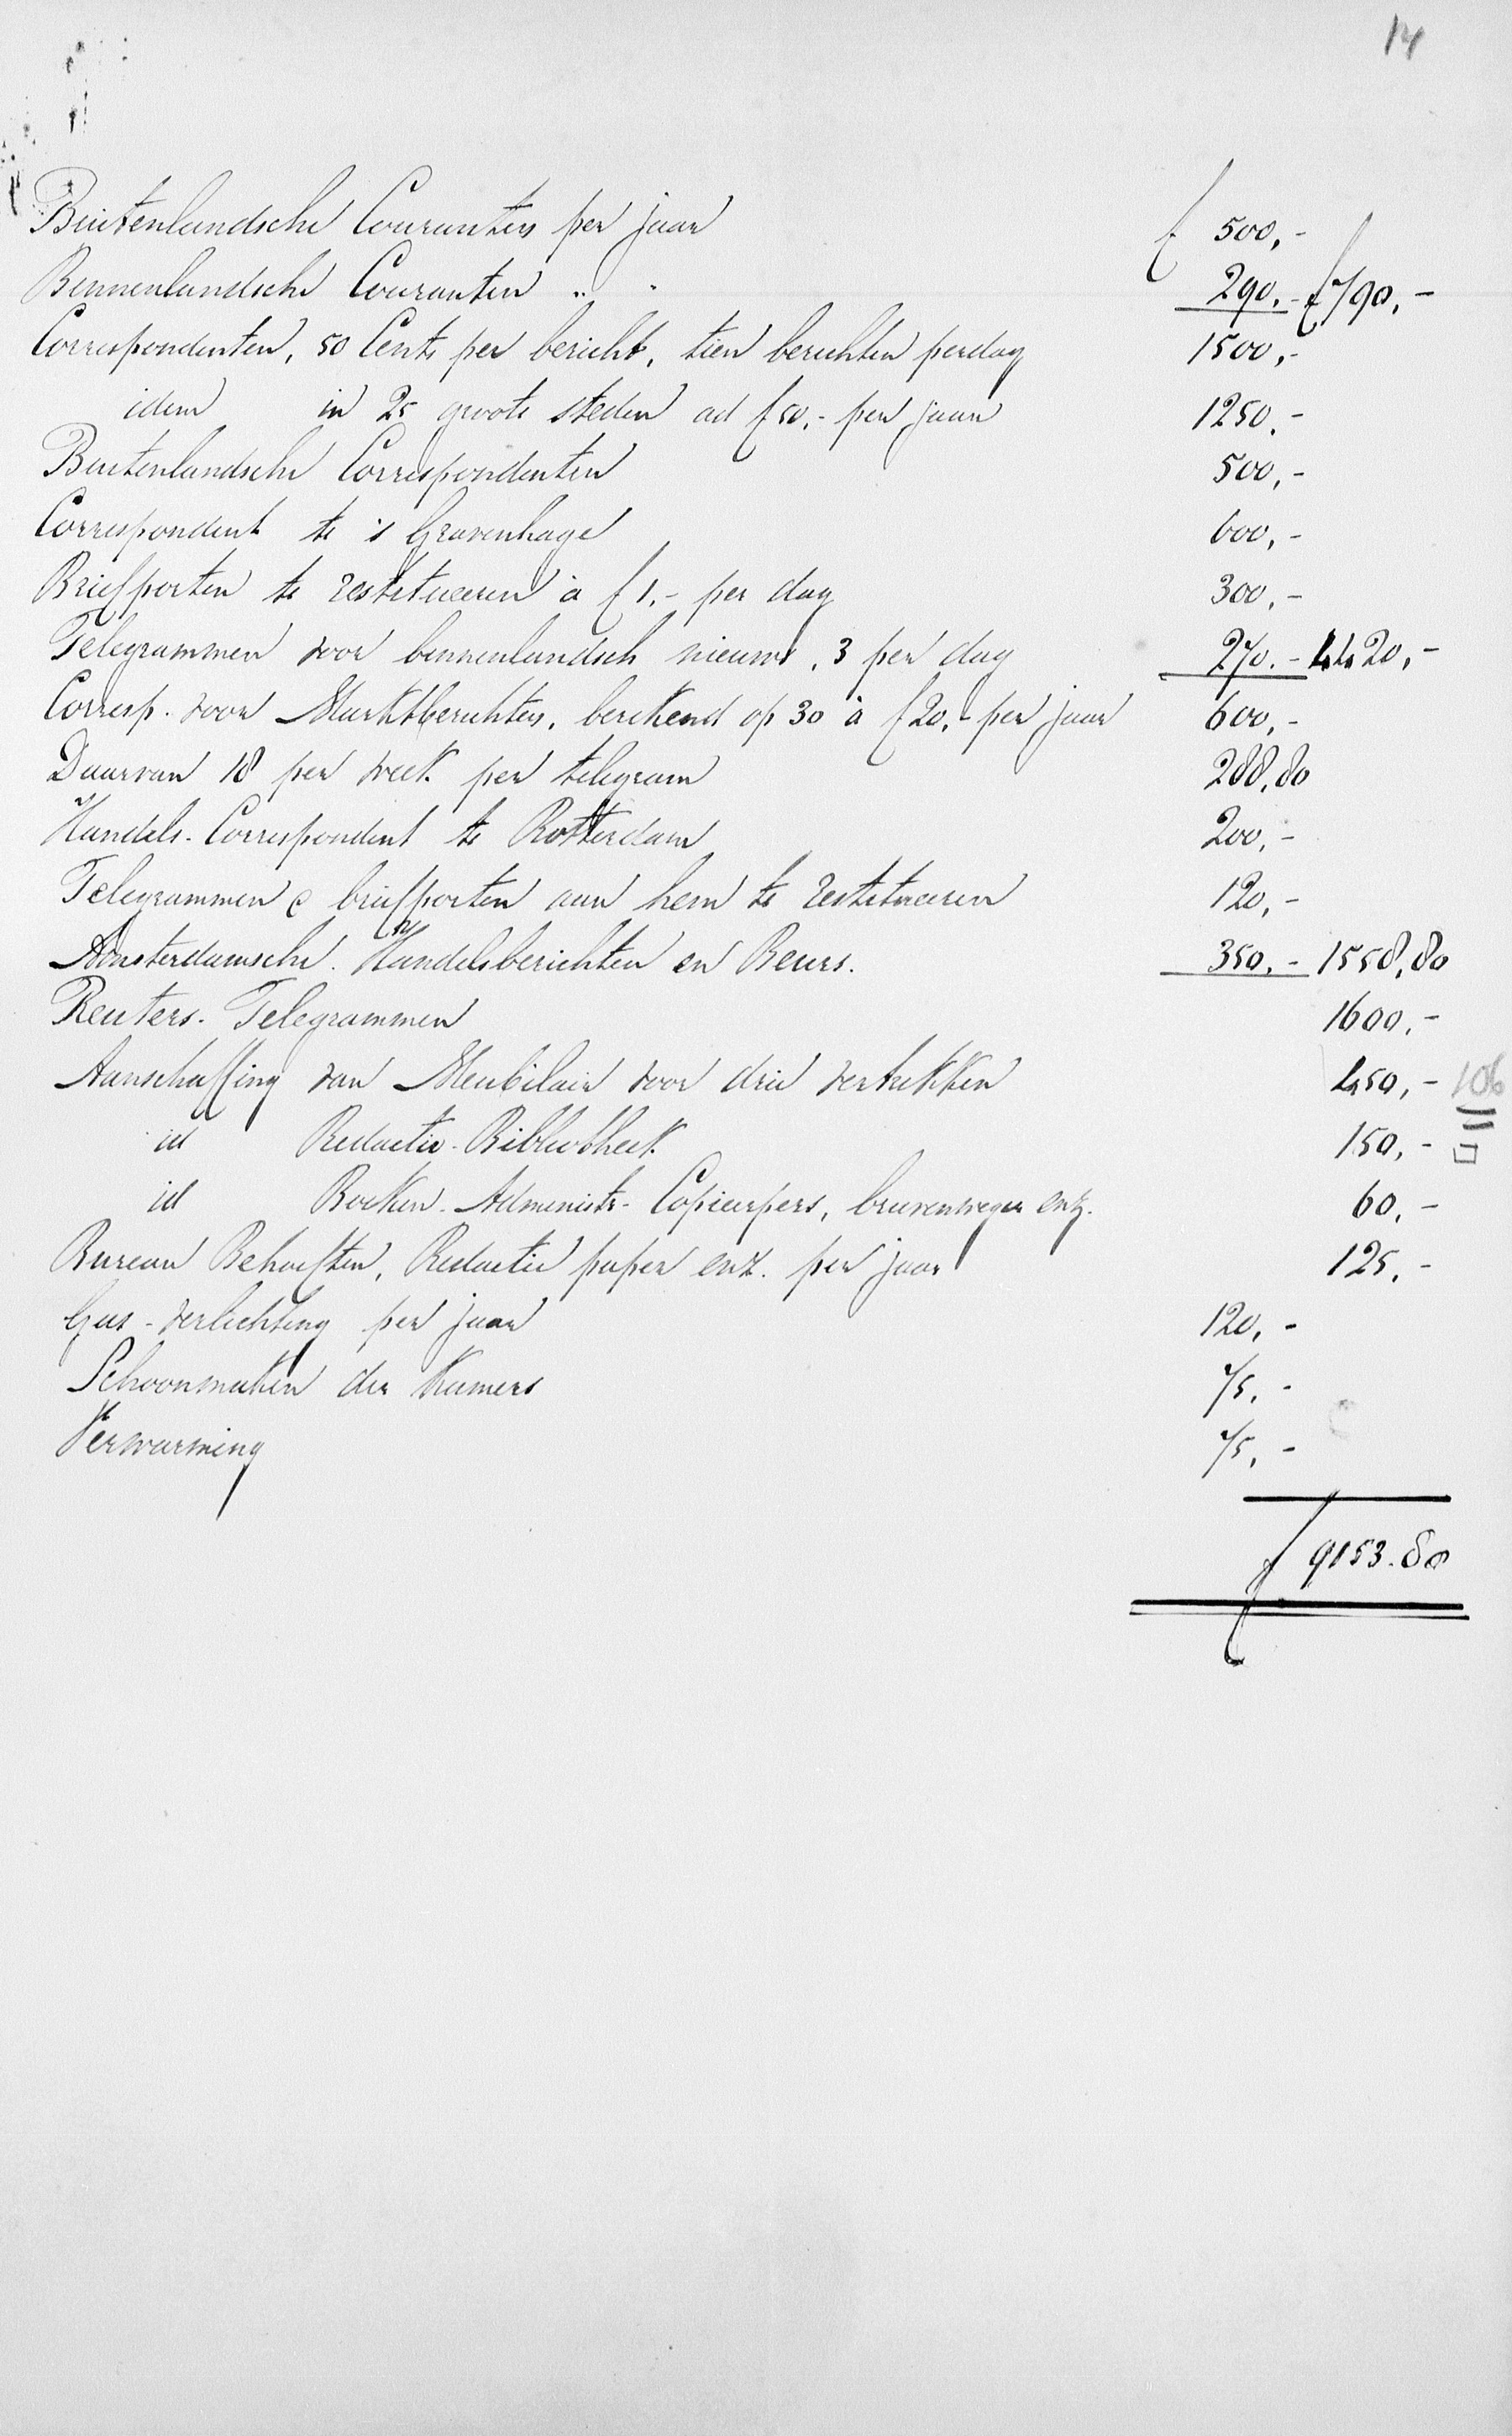 14
Buitenlandsche Couranten per jaar f 500,-
Binnenlandsche Couranten „ „ 290,- f 790,-
Correspondenten, 50 Cents per bericht, tien berichten per dag 1500,-
idem in 25 groote steden ad f 50,- per jaar 1250,-
Buitenlandsche Correspondenten 500,-
Correspondent te 's Gravenhage 600,-
Briefporten te restitueeren à f 1,- per dag 300,-
Telegrammen voor binnenlandsch nieuws, 3 per dag 270.- 4420,-
Corresp. voor Marktberichten, berekend op 30 à f 20,- per jaar 600,-
Daarvan 18 per week per telegram 288,80
Handels-Correspondent te Rotterdam 200,-
Telegrammen & briefporten aan hem te restitueeren 120,-
Amsterdamsche Handelsberichten en Beurs. 350,- 1558,80
Reuters-Telegrammen 1600,-
Aanschaffing van Meubilair voor drie vertrekken 450,- 106
id Redactie-Bibliotheek 150,-
id Boeken-Administr- Copieerpers, brievenweger enz. 60,-
Bureau Behoeften, Redactie papier enz. per jaar 125,-
Gas-verlichting per jaar 120,-
Schoonmaken der Kamers 75,-
Verwarming 75,-
f 9153.80